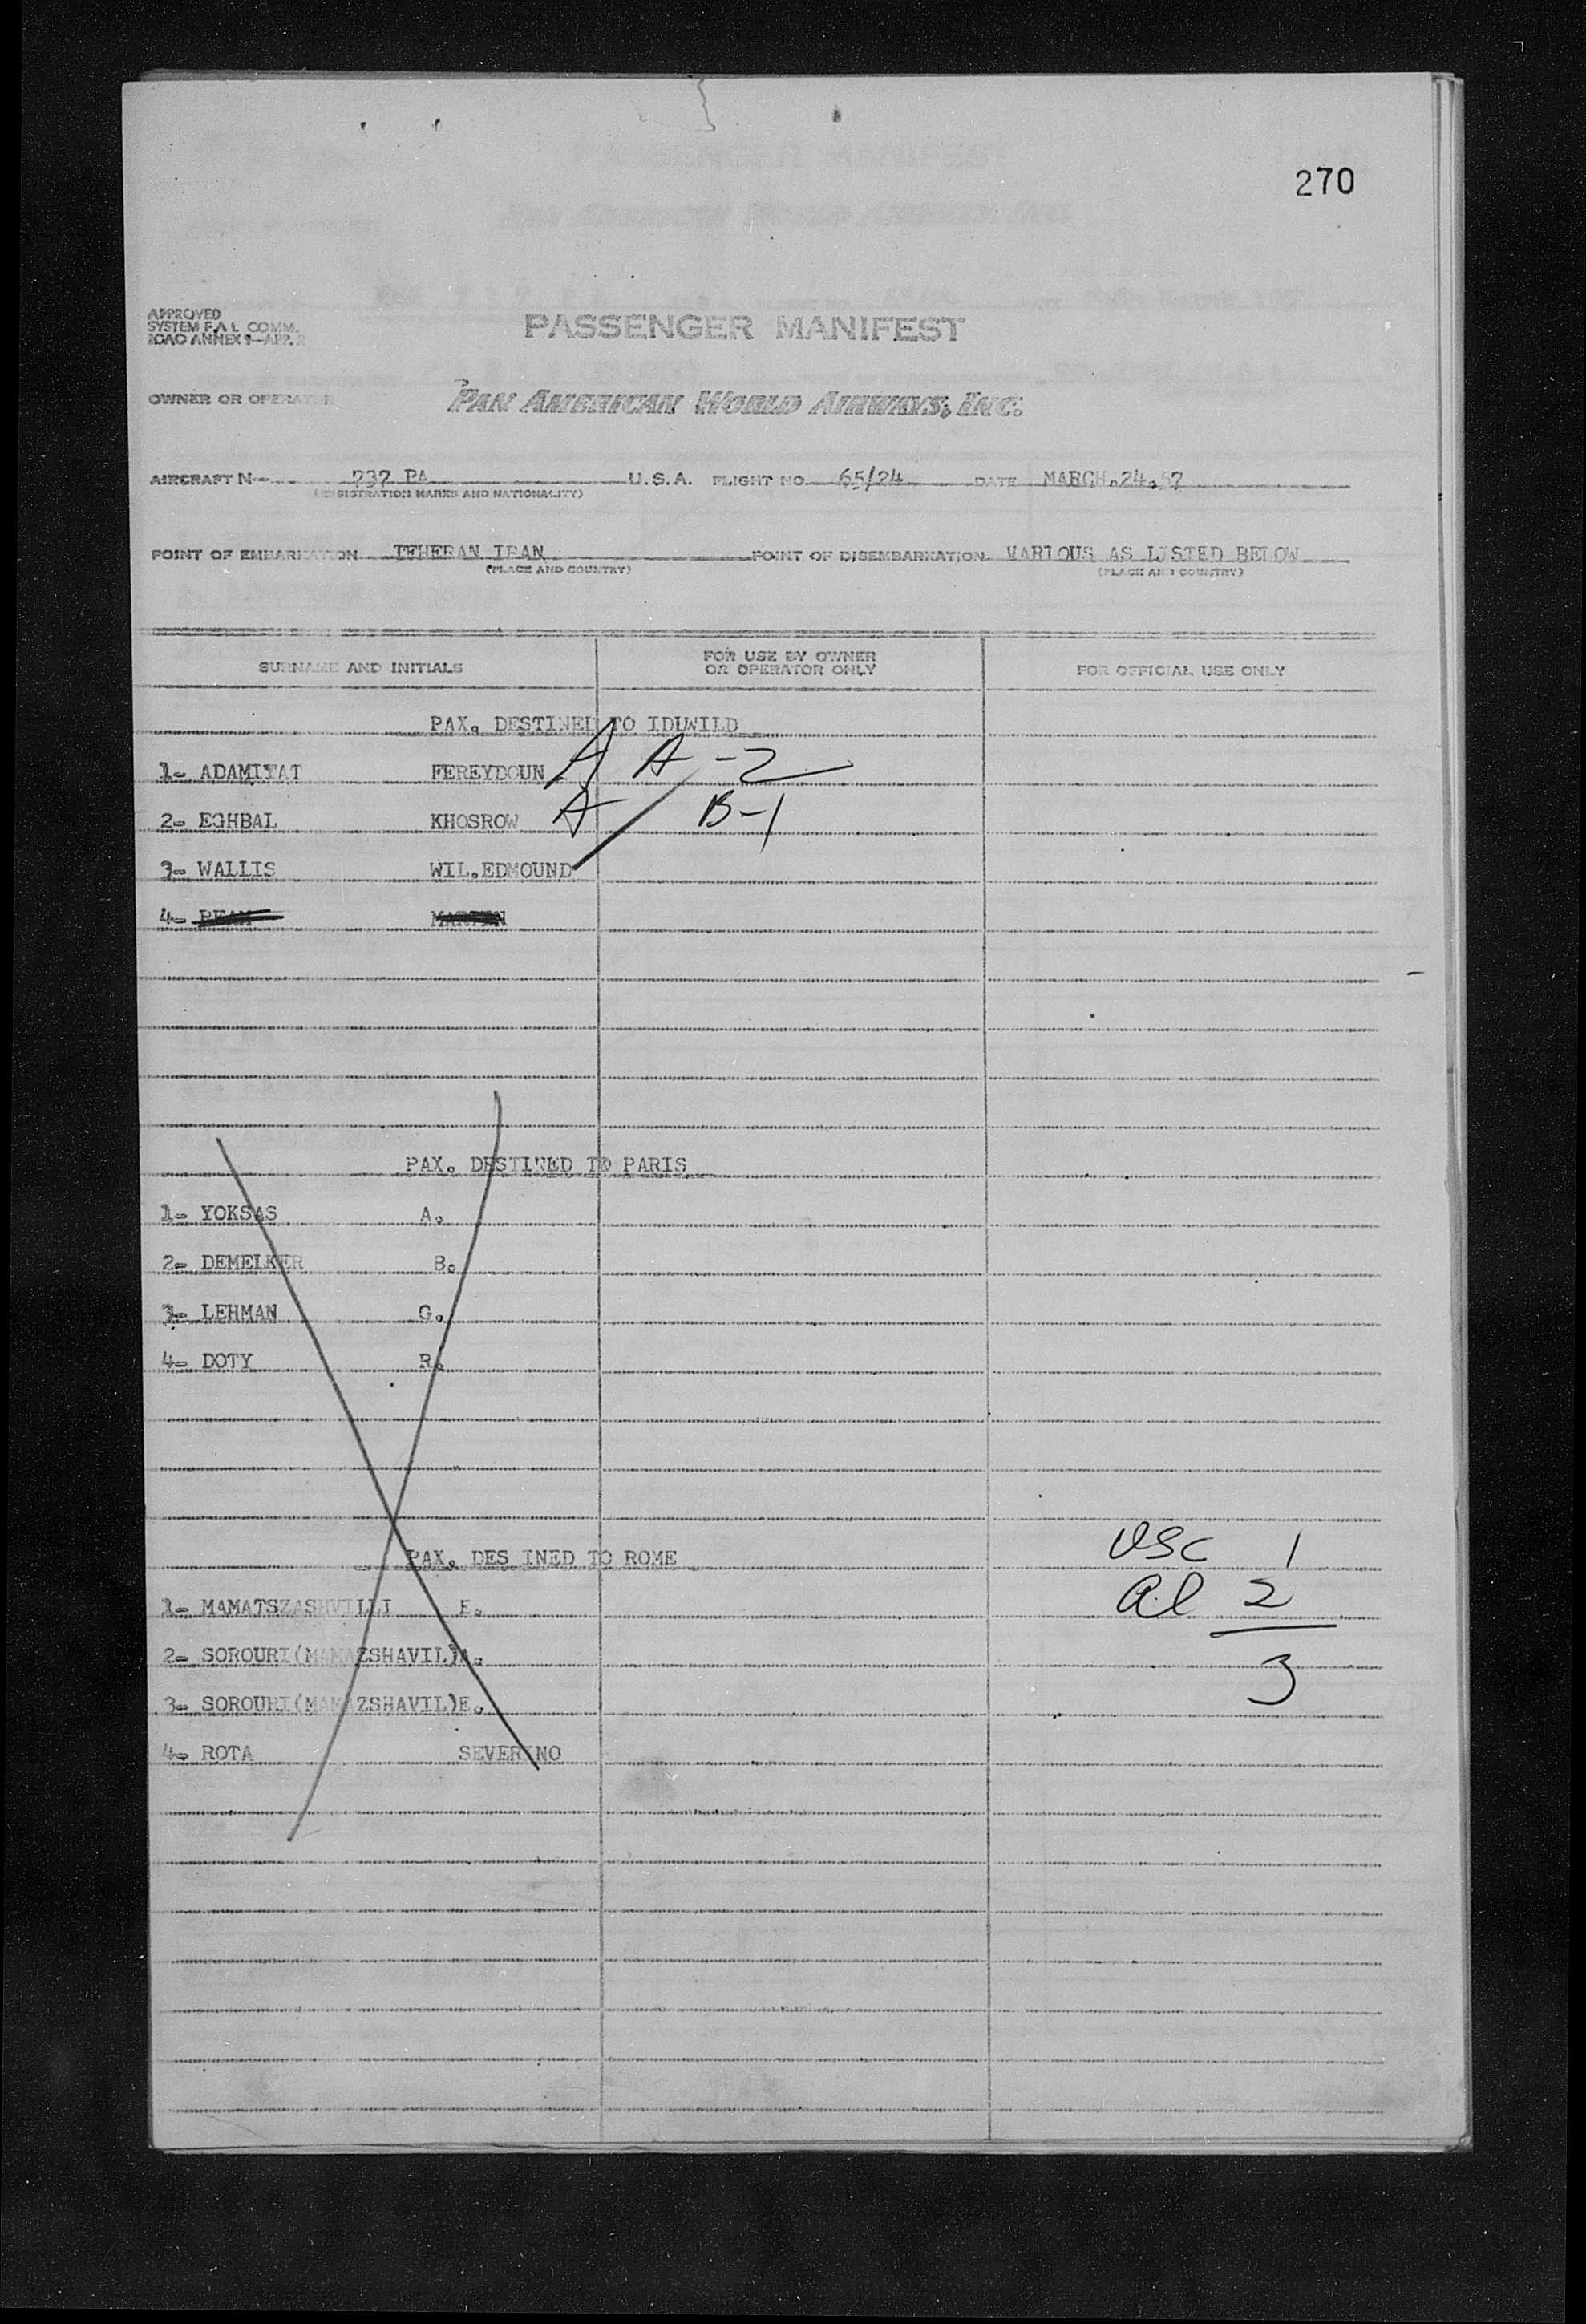 270
APPROVED
SYSTEM F.A.L. COMM.
ICAO ANNEX 9—APP. 2
PASSENGER MANIFEST
OWNER OR OPERATOR PAN AMERICAN WORLD AIRWAYS, INC.
AIRCRAFT N- 737 PA U.S.A. FLIGHT NO. 65/24 DATE MARCH.24.57
(REGISTRATION MARKS AND NATIONALITY)
POINT OF EMBARKATION TEHERAN IRAN POINT OF DISEMBARKATION VARIOUS AS LISTED BELOW
(PLACE AND COUNTRY) (PLACE AND COUNTRY)
SURNAME AND INITIALS FOR USE BY OWNER OR OPERATOR ONLY FOR OFFICIAL USE ONLY
PAX. DESTINED TO IDLWILD
1- ADAMIYAT FEREYDOUN A A-2
2- EGHBAL KHOSROW A B-1
3- WALLIS WIL.EDMOUND
4- MARTIN
PAX. DESTINED TO PARIS
1- YOKSAS A.
2- DEMELKER B.
3- LEHMAN G.
4- DOTY R.
PAX. DES INED TO ROME USC 1
1- MAMATSZASHVILLI E. al 2
2- SOROURI(MAMAZSHAVIL)A. 3
3- SOROURI(MAMAZSHAVIL)E.
4- ROTA SEVERINO